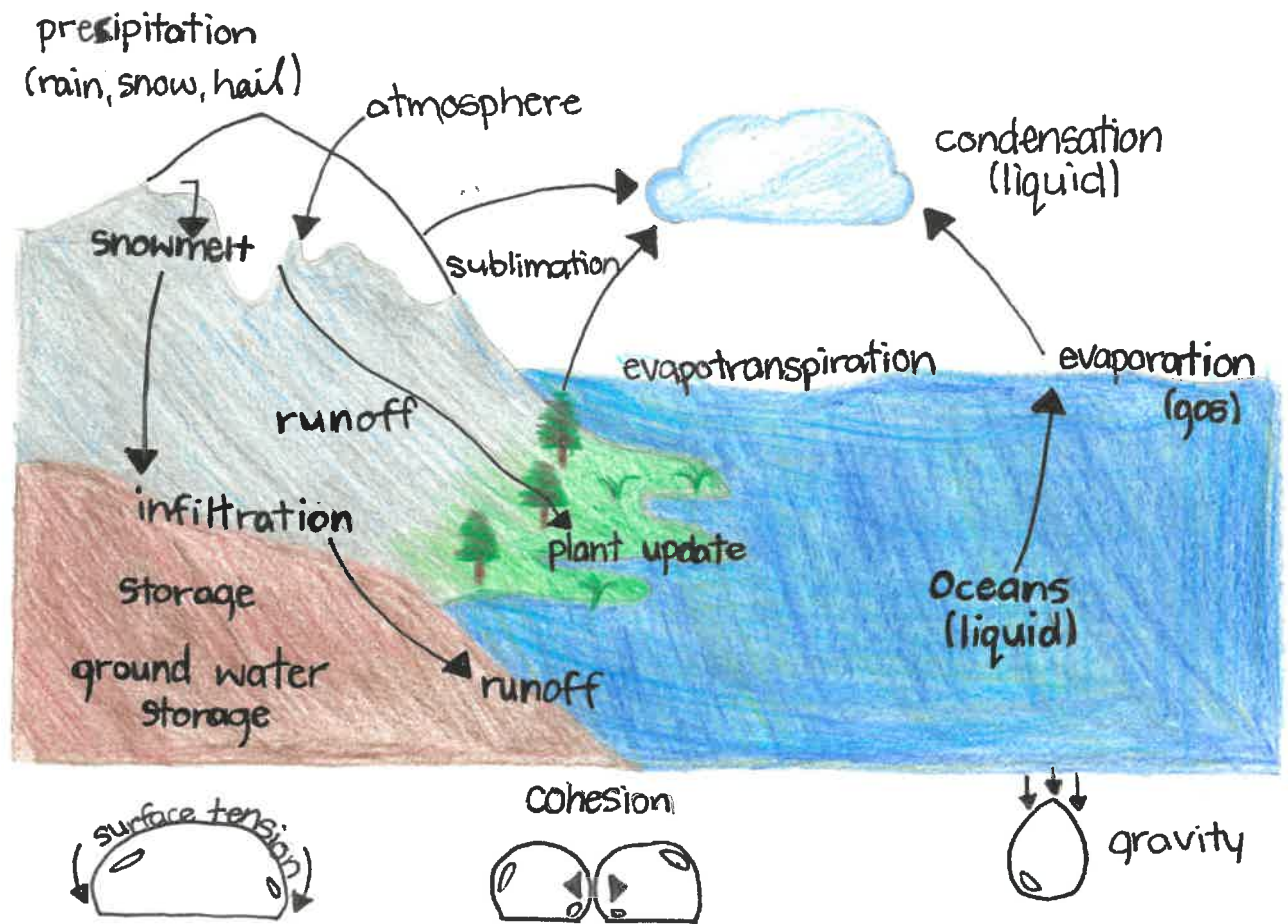 presipitation
(rain, snow, hail)
atmosphere
condensation
(liquid)
snowmelt
sublimation
evapotranspiration
evaporation
(gas)
runoff
infiltration
plant update
storage
Oceans
(liquid)
ground water
storage
runoff
cohesion
surface tension
gravity